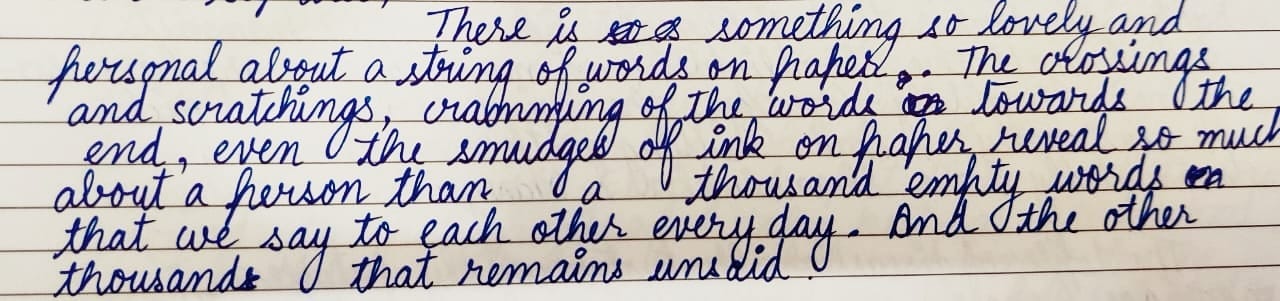 There is something so lovely and
personal about a string of words on paper. The crossings
and scratchings, crammming of the words towards the
end, even the smudges of ink on paper reveal so much
about a person than a thousand empty words
that we say to each other every day. And the other
thousands that remains unsaid.